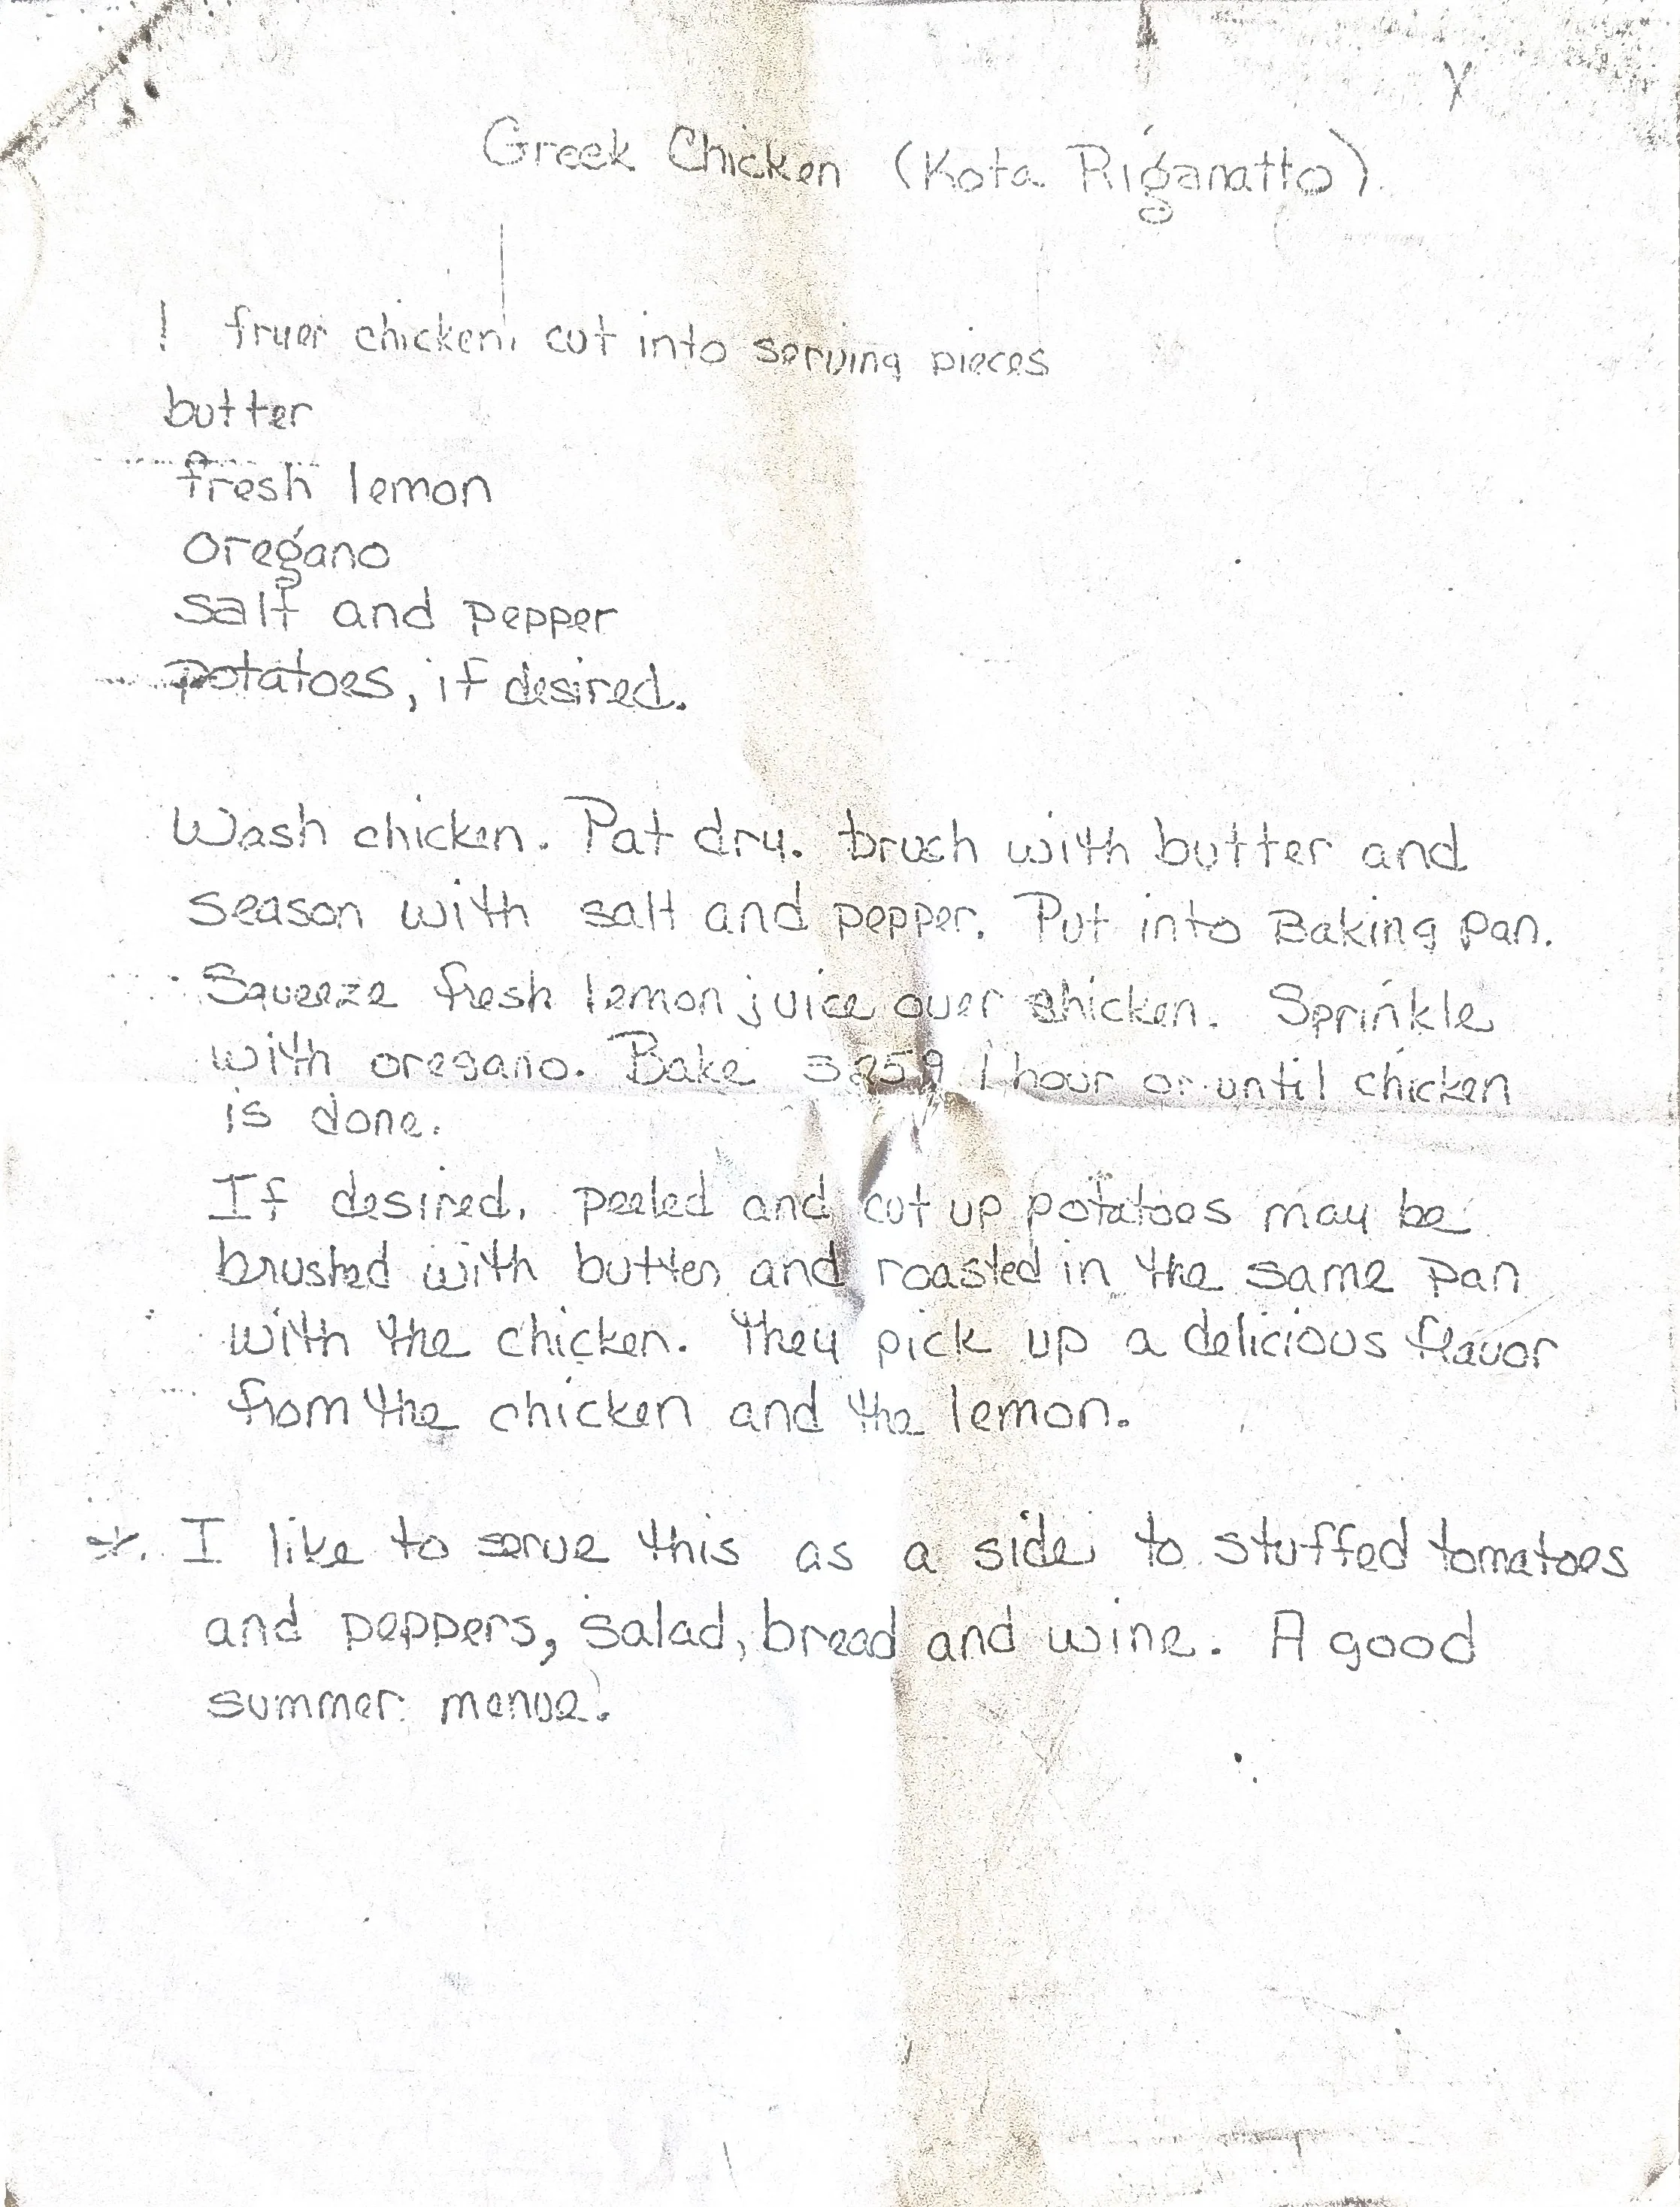 Greek Chicken (Kota Riganatto)
1 fryer chicken, cut into serving pieces
butter
fresh lemon
oregano
salt and pepper
potatoes, if desired.
Wash chicken. Pat dry. bruch with butter and
season with salt and pepper. Put into Baking pan.
Squeeze fresh lemon juice over chicken. Sprinkle
with oregano. Bake 1 hour or until chicken
is done.
If desired, peeled and cut up potatoes may be
brushed with butter and roasted in the same pan
with the chicken. They pick up a delicious flavor
from the chicken and the lemon.
*. I like to serve this as a side to stuffed tomatoes
and peppers, salad, bread and wine. A good
summer menue.